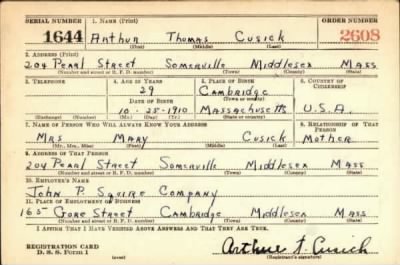 SERIAL NUMBER 1. NAME (Print) ORDER NUMBER
1644 Arthur Thomas Cusick 2608
(First) (Middle) (Last)
2. ADDRESS (Print)
204 Pearl Street Somerville Middlesex Mass
(Number and street or R. F. D. number) (Town) (County) (State)
3. TELEPHONE 4. AGE IN YEARS 5. PLACE OF BIRTH 6. COUNTRY OF CITIZENSHIP
29 Cambridge
DATE OF BIRTH (Town or county)
10-28-1910 Massachusetts U.S.A.
(Exchange) (Number) (Mo.) (Day) (Yr.) (State or country)
7. NAME OF PERSON WHO WILL ALWAYS KNOW YOUR ADDRESS 8. RELATIONSHIP OF THAT PERSON
Mrs Mary Cusick Mother
(Mr., Mrs., Miss) (First) (Middle) (Last)
9. ADDRESS OF THAT PERSON
204 Pearl Street Somerville Middlesex Mass
(Number and street or R. F. D. number) (Town) (County) (State)
10. EMPLOYER'S NAME
John P. Squire Company
11. PLACE OF EMPLOYMENT OR BUSINESS
165 Gore Street Cambridge Middlesex Mass
(Number and street or R. F. D. number) (Town) (County) (State)
I AFFIRM THAT I HAVE VERIFIED ABOVE ANSWERS AND THAT THEY ARE TRUE.
REGISTRATION CARD
D. S. S. Form 1 Arthur T. Cusick
(Registrant's signature)